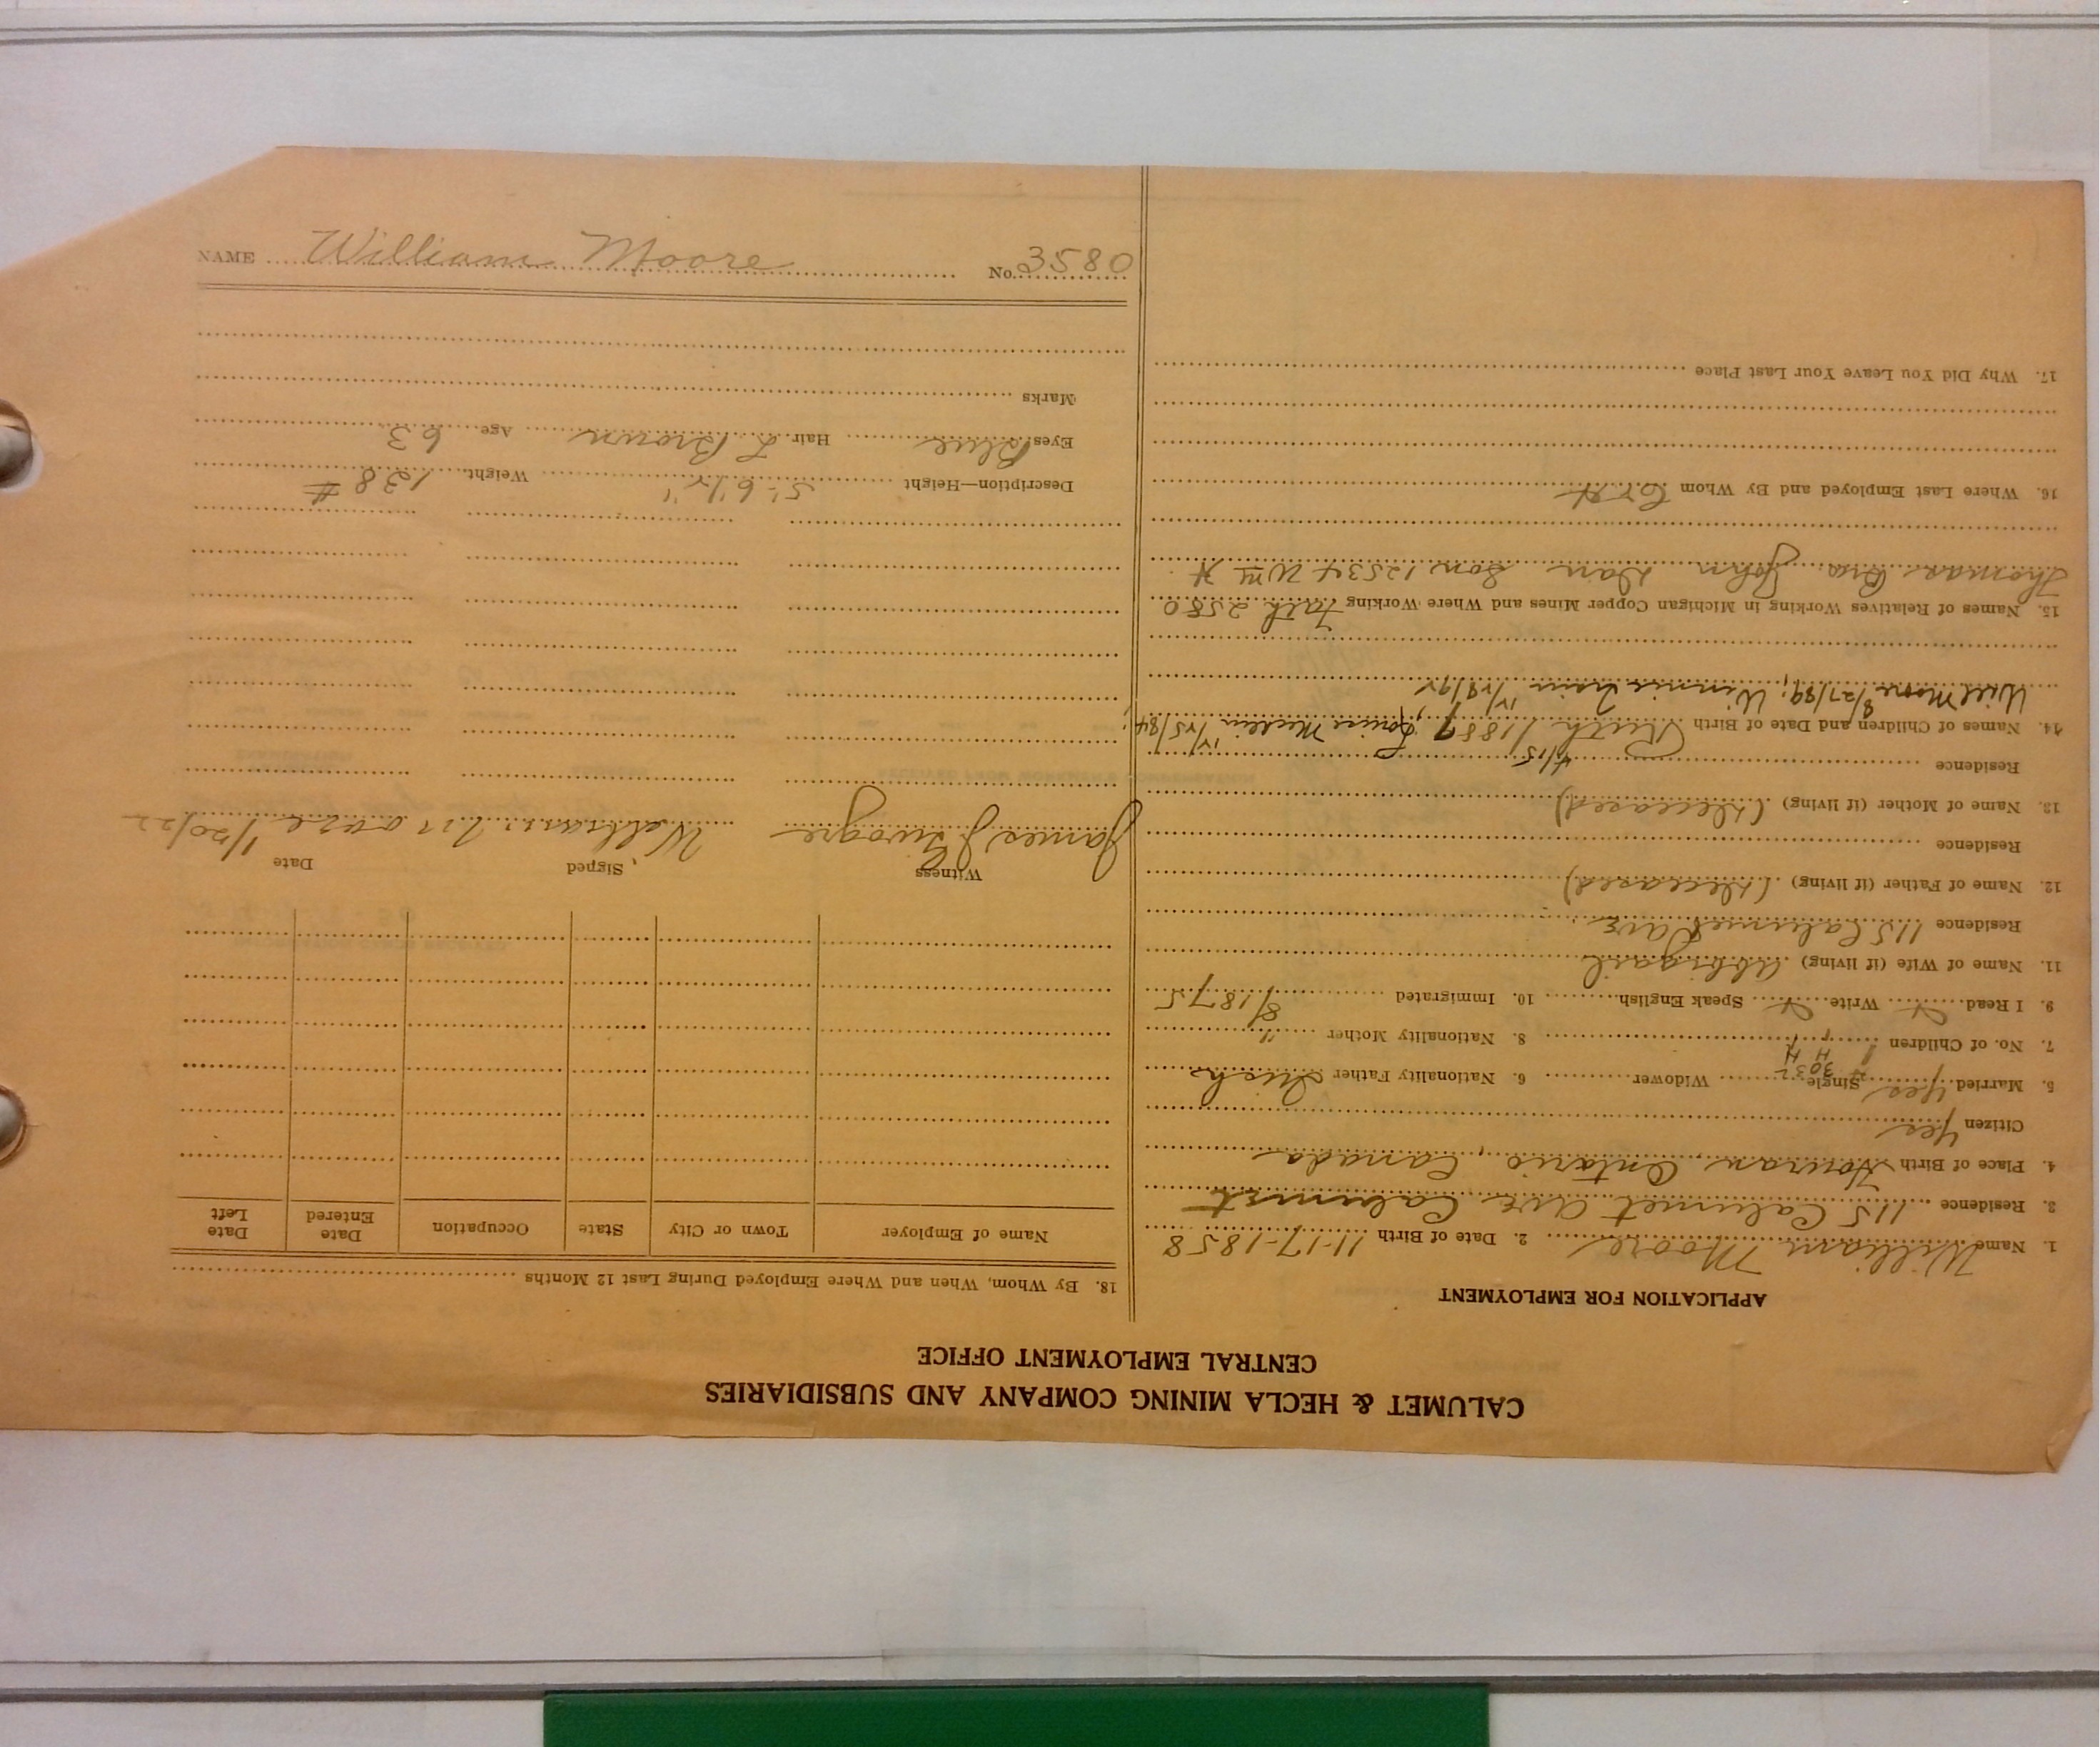 CALUMET & HECLA MINING COMPANY AND SUBSIDIARIES
CENTRAL EMPLOYMENT OFFICE
APPLICATION FOR EMPLOYMENT
1. Name William Moore 2. Date of Birth 11-17-1858
3. Residence 115 Calumet Ave Calumet
4. Place of Birth Ontario, Canada
Citizen Yes
5. Married Yes Single Widower 6. Nationality Father Irish
7. No. of Children 8. Nationality Mother "
9. I Read Write Speak English 10. Immigrated 8/1875
11. Name of Wife (if living) Abigail
Residence 115 Calumet Ave
12. Name of Father (if living) (Deceased)
Residence
13. Name of Mother (if living) (Deceased)
Residence
14. Names of Children and Date of Birth Ruth 4/15/1887
Will Moore 8/27/89; Winnie
15. Names of Relatives Working in Michigan Copper Mines and Where Working
Thomas Bro. John Son 12534 Wm
16. Where Last Employed and By Whom C & H
17. Why Did You Leave Your Last Place
18. By Whom, When and Where Employed During Last 12 Months
Name of Employer Town or City State Occupation Date Entered Date Left
Witness Signed Date
James William Moore 1/20/22
Description—Height 5'-6½" Weight 138 #
Eyes Blue Hair L Brown Age 63
Marks
NAME William Moore No. 3580